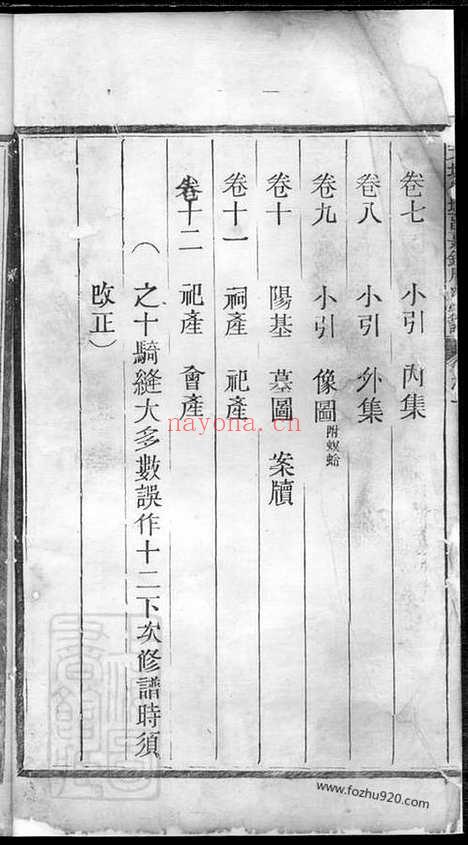 卷七　小引　內集
卷八　小引　外集
卷九　小引　像圖附螟蛉
卷十　陽基　墓圖　案牘
卷十一　祠產　祀產
卷十二　祀產　會產
（之十騎縫大多數誤作十二下次修譜時須
改正）
nayona.cn
www.fozhu920.com